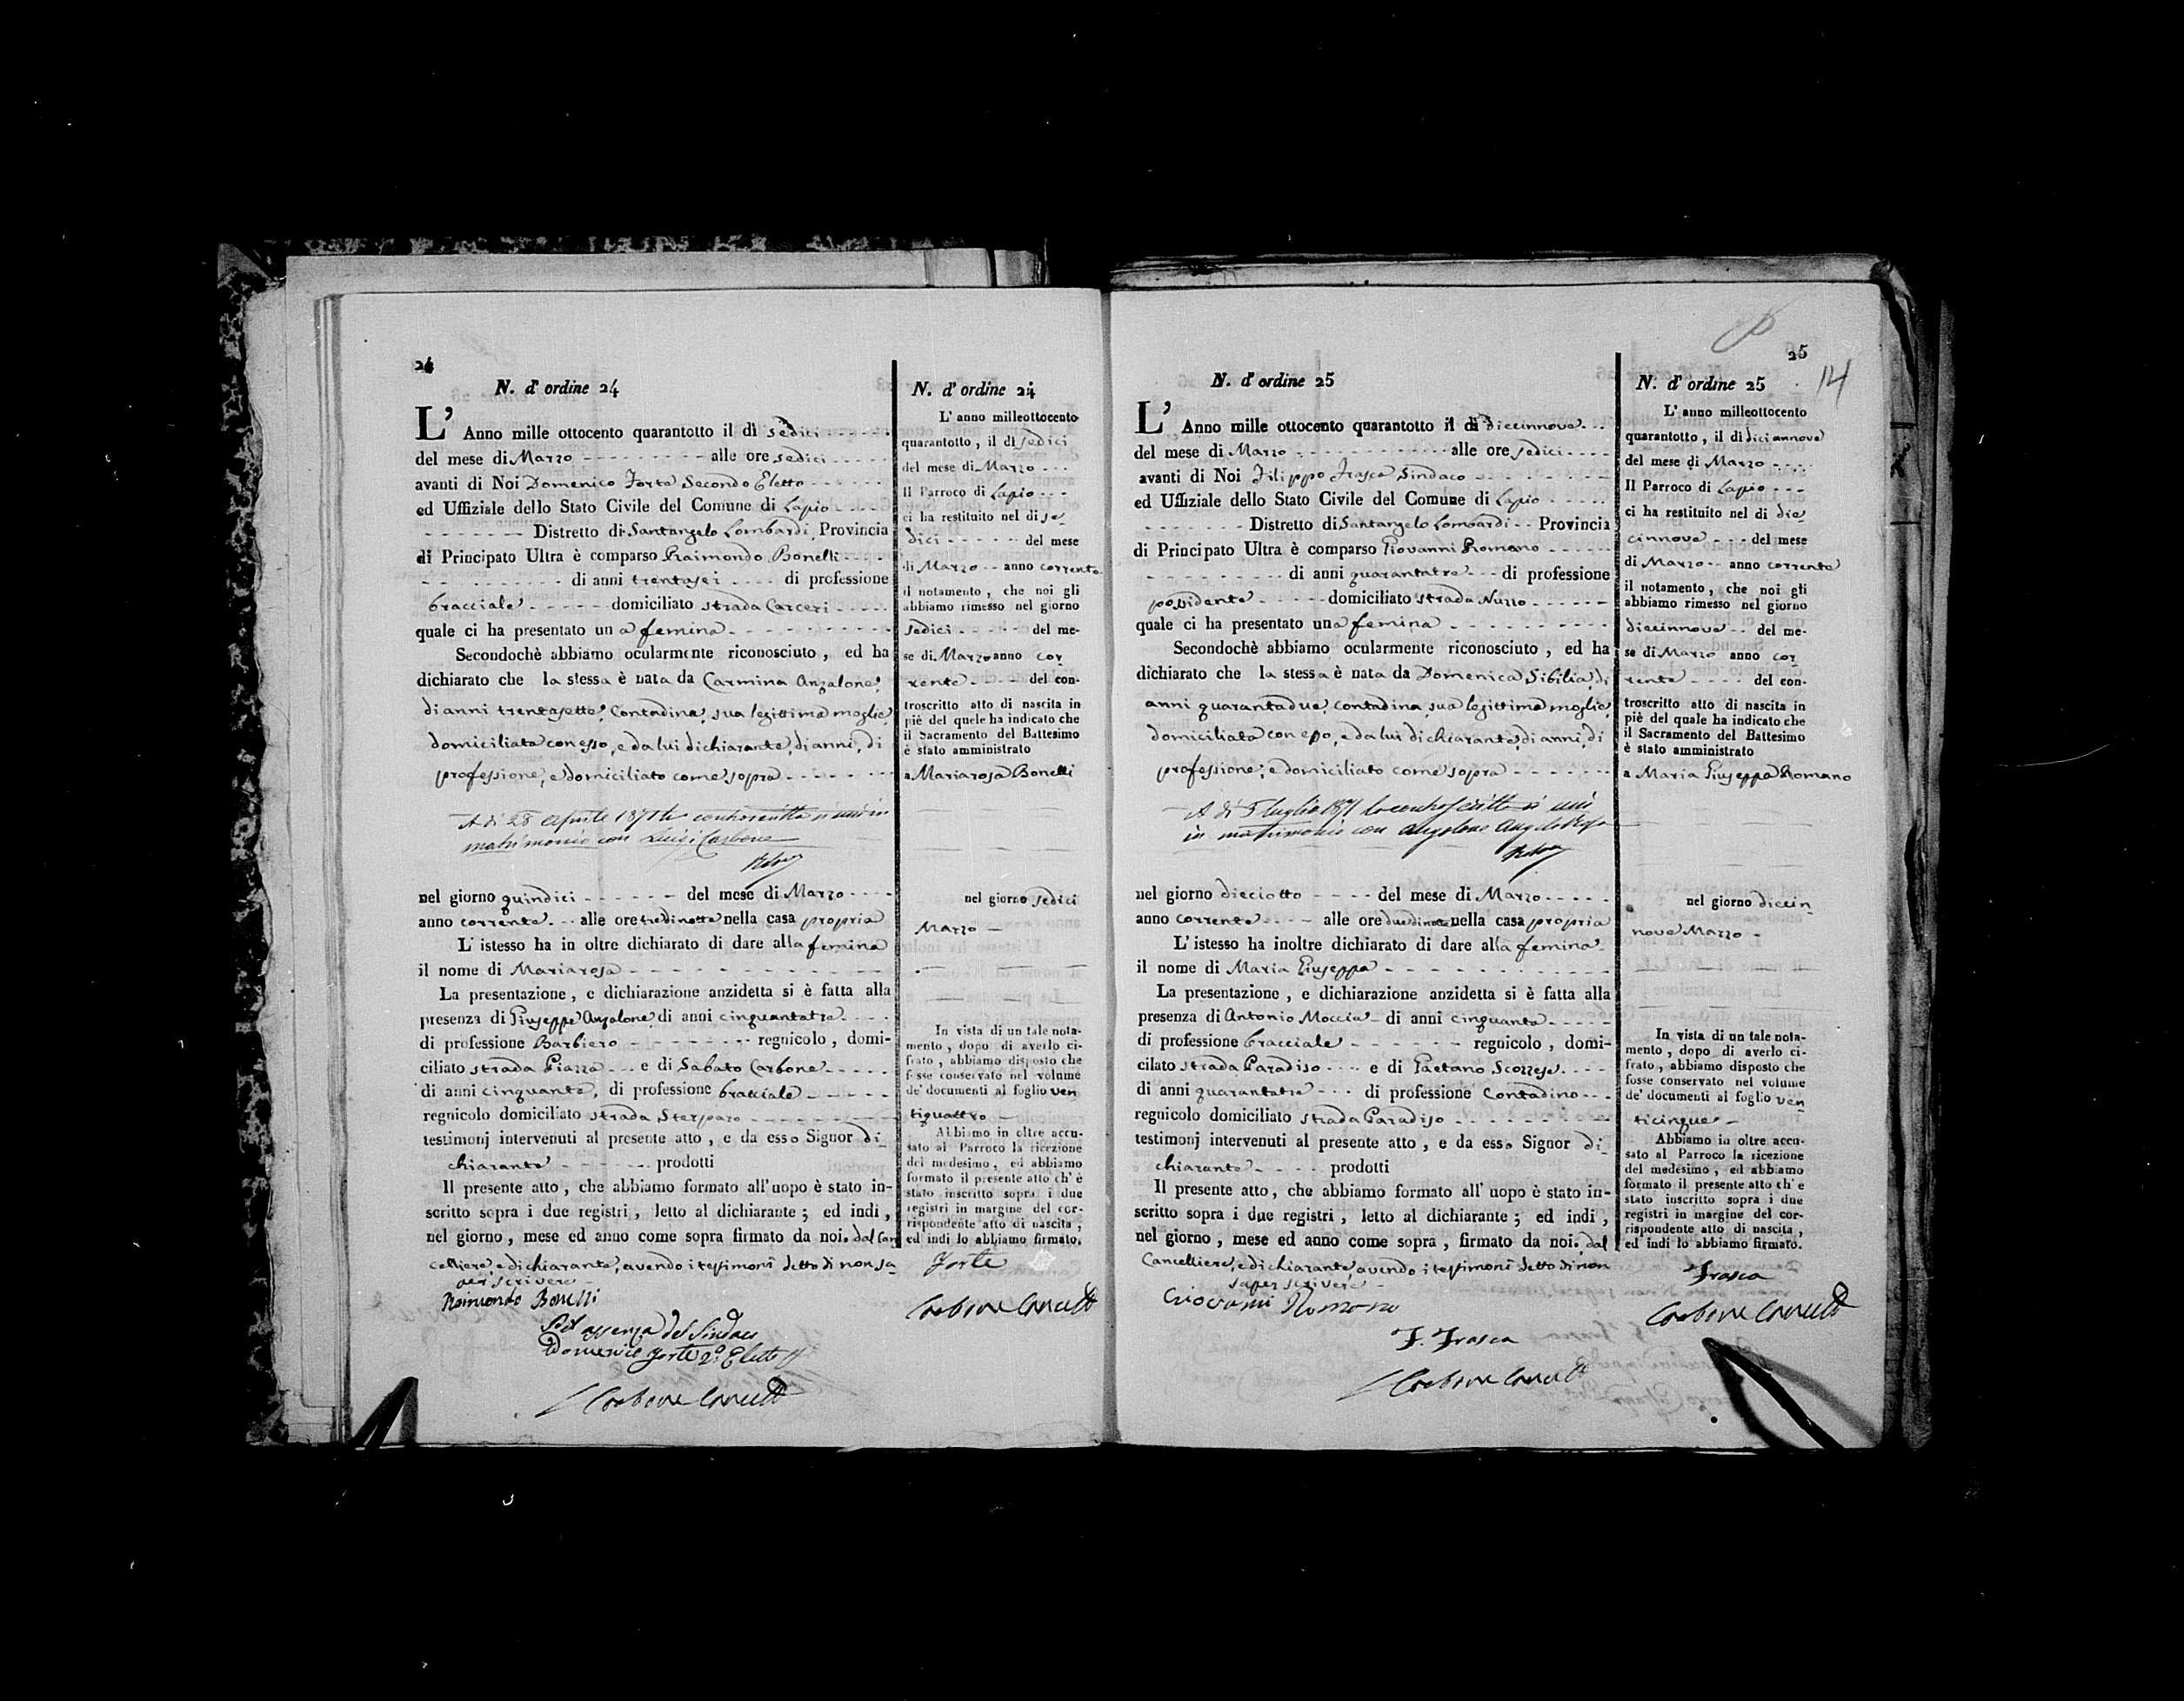 24
N. d' ordine 24
L' Anno mille ottocento quarantotto il dì sedici
del mese di Marzo alle ore sedici
avanti di Noi Domenico Forte Secondo Eletto
ed Uffiziale dello Stato Civile del Comune di Lapio
Distretto di Santangelo Lombardi Provincia
di Principato Ultra è comparso Raimondo Bonelli
di anni trentasei di professione
bracciale domiciliato strada Carceri
quale ci ha presentato una femina
Secondochè abbiamo ocularmente riconosciuto, ed ha
dichiarato che la stessa è nata da Carmina Anzalone,
di anni trentasette, Contadina, sua legittima moglie,
domiciliata con esso, e da lui dichiarante, di anni, di
professione, e domiciliato come sopra
A di 28 Aprile 1871 la controscritta si unì in
matrimonio con Luigi Carbone
nel giorno quindici del mese di Marzo
anno corrente alle ore tre di notte nella casa propria
L' istesso ha in oltre dichiarato di dare alla femina
il nome di Mariarosa
La presentazione, e dichiarazione anzidetta si è fatta alla
presenza di Giuseppe Anzalone di anni cinquantatre
di professione Barbiero regnicolo, domi-
ciliato strada Piazza e di Sabato Carbone
di anni cinquanta, di professione bracciale
regnicolo domiciliato strada Sterparo
testimonj intervenuti al presente atto, e da esso Signor di-
chiarante prodotti
Il presente atto, che abbiamo formato all' uopo è stato in-
scritto sopra i due registri, letto al dichiarante; ed indi,
nel giorno, mese ed anno come sopra firmato da noi. dal Can
celliere, e dichiarante, avendo i testimoni detto di non sa-
per scrivere
Raimondo Bonelli
Pell assenza del Sindaco
Domenico Forte 2° Eletto
Carbone
N. d' ordine 24
L' anno milleottocento
quarantotto, il dì sedici
del mese di Marzo
Il Parroco di Lapio
ci ha restituito nel dì se-
dici del mese
di Marzo anno corrente
il notamento, che noi gli
abbiamo rimesso nel giorno
sedici del me-
se di Marzo anno cor-
rente del con-
troscritto atto di nascita in
piè del quele ha indicato che
il Sacramento del Battesimo
è stato amministrato
a Mariarosa Bonelli
nel giorno sedici
Marzo
In vista di un tale nota-
mento, dopo di averlo ci-
frato, abbiamo disposto che
fosse conservato nel volume
de' documenti al foglio ven
tiquattro
Abbiamo in oltre accu-
sato al Parroco la ricezione
del medesimo, ed abbiamo
formato il presente atto ch' è
stato inscritto sopra i due
registri in margine del cor-
rispondente atto di nascita,
ed indi lo abbiamo firmato.
Forte
Carbone
25
14
N. d' ordine 25
L' Anno mille ottocento quarantotto il dì diecinnove
del mese di Marzo alle ore sedici
avanti di Noi Filippo Frasca Sindaco
ed Uffiziale dello Stato Civile del Comune di Lapio
Distretto di Santangelo Lombardi Provincia
di Principato Ultra è comparso Giovanni Romano
di anni quarantatre di professione
possidente domiciliato strada Nuzzo
quale ci ha presentato una femina
Secondochè abbiamo ocularmente riconosciuto, ed ha
dichiarato che la stessa è nata da Domenica Sibilia, di
anni quarantadue, contadina, sua legittima moglie,
domiciliata con esso, e da lui dichiarante, di anni, di
professione, e domiciliato come sopra
A di 5 luglio 1871 la controscritta si unì
in matrimonio con
nel giorno dieciotto del mese di Marzo
anno corrente alle ore due di notte nella casa propria
L' istesso ha inoltre dichiarato di dare alla femina
il nome di Maria Giuseppa
La presentazione, e dichiarazione anzidetta si è fatta alla
presenza di Antonio Moccia di anni cinquanta
di professione bracciale regnicolo, domi-
cilato strada Paradiso e di Gaetano Scorzese
di anni quarantatre di professione Contadino
regnicolo domiciliato strada Paradiso
testimonj intervenuti al presente atto, e da esso Signor di-
chiarante prodotti
Il presente atto, che abbiamo formato all' uopo è stato in-
scritto sopra i due registri, letto al dichiarante; ed indi,
nel giorno, mese ed anno come sopra, firmato da noi. dal
Cancelliere, e dichiarante, avendo i testimoni detto di non
saper scrivere
Giovanni Romano
F. Frasca
Carbone
N. d' ordine 25
L' anno milleottocento
quarantotto, il dì diciannove
del mese di Marzo
Il Parroco di Lapio
ci ha restituito nel dì die-
cinnove del mese
di Marzo anno corrente
il notamento, che noi gli
abbiamo rimesso nel giorno
diecinnove del me-
se di Marzo anno cor-
rente del con-
troscritto atto di nascita in
piè del quale ha indicato che
il Sacramento del Battesimo
è stato amministrato
a Maria Giuseppa Romano
nel giorno diecin-
nove Marzo
In vista di un tale nota-
mento, dopo di averlo ci-
frato, abbiamo disposto che
fosse conservato nel volume
de' documenti al foglio ven-
ticinque
Abbiamo in oltre accu-
sato al Parroco la ricezione
del medesimo, ed abbiamo
formato il presente atto ch' è
stato inscritto sopra i due
registri in margine del cor-
rispondente atto di nascita,
ed indi lo abbiamo firmato.
Frasca
Carbone